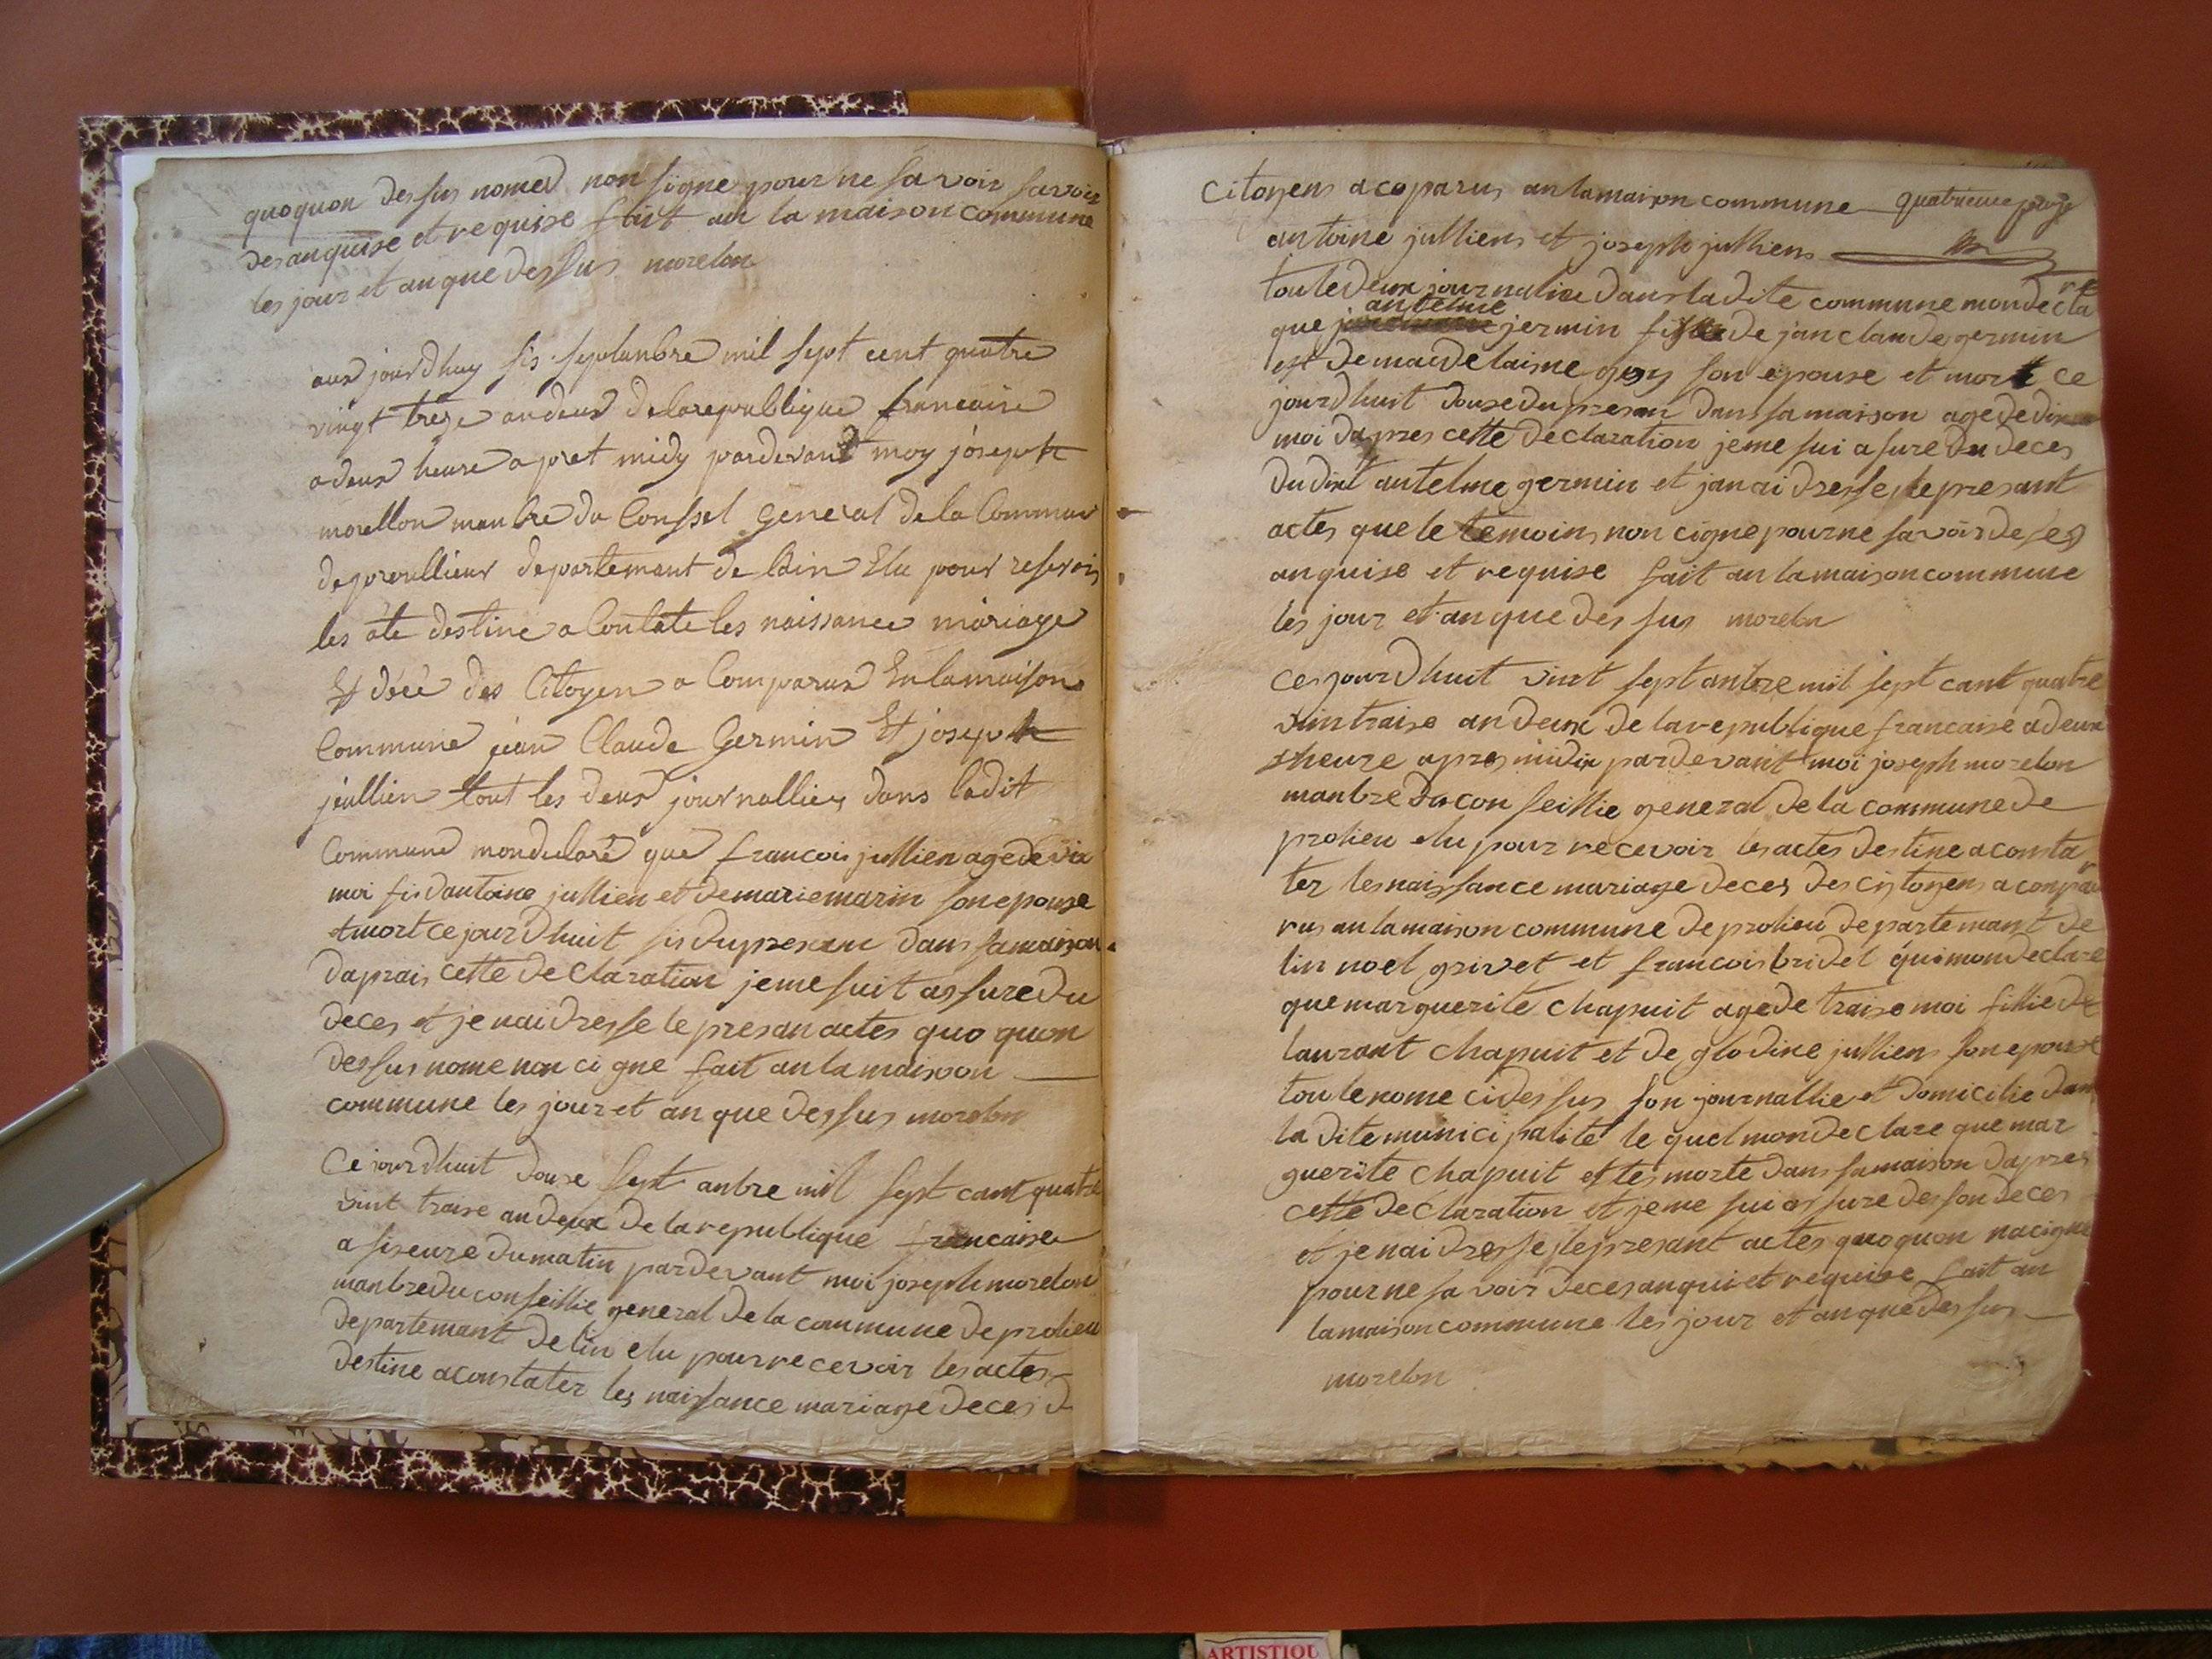 quoquon dessus nomed non signe pour ne savoir savoir
des anquise et requise fait an la maison commune
les jour et an que dessus morelon
aux jourdhuy sis septanbre mil sept cent quatre
vingt treze an deux de la republique francaise
a deux heure apret midy pardevant moy joseph
morellon manbre du Conssel General de la Commune
de proullieur departemant de lain Elu pour reservoir
les ate destine a Contate les naissance mariage
Et décé des Citoyen a Comparus En la maison
Commune jean Claude Germin Et joseph
jullien tout les deux journallier dans ladit
Commune mon declaré que francois jullien age de
moi fis dantoine jullien et de marie marin son epouse
et mort ce jourdhuit sis du presant dans sa maison
daprais cette declaration je me suit assure du
deces et je nai dresse le presan actes quo quon
dessus nome non cigne fait an la maison
commune les jour et an que dessus morelon
Ce jourdhuit douse sept anbre mil sept cant quatre
vint traise an deux de la republique francaise
a siseure du matin pardevant moi joseph morelon
manbre du conseillie general de la commune de prolieu
departemant de lin elu pour recevoir les actes
destine a constater les naissance mariage deces d
Citoyens a coparus an la maison commune quatrieme page
antoine julliens et joseph julliens
toule deux journalie dans la dite commune mon decla re
que antelme jermin fis de jan claude germin
est de maidelaisne goy son epouse et mort ce
jourdhuit douse du presan dans sa maison age de dix
moi dapres cette declaration je me sui asure du deces
du dixt antelme germin et jan ai dresse le presant
actes que le temoins non cigne pour ne savoir de ses
anquise et requise fait an la maison commune
les jour et an que dessus morelon
Ce jourdhuit vint septanbre mil sept cant quatre
vin traise an deux de la republique francaise a deux
sheure apres midix pardevant moi joseph morelon
manbre du conseillie general de la commune de
prolieu elu pour recevoir les actes destine a consta
ter les naissance mariage deces des citoyens a conpa
rus an la maison commune de prolieu departemant de
lin noel grivet et francois bridel qui mon declare
que marguerite chapuit age de traise moi fillie de
laurant chapuit et de glodine julliens son epouse
toule nome ci dessus son journallie et domicilie dans
la dite municipalité le quel mon declare que mar
guerite chapuit et tes morte dans sa maison dapres
cette declaration et je me sui assure des son deces
et je nai dresse le presant actes quoquon na cigne
pour ne savoir de ces anqui et requise fait an
la maison commune les jour et an que dessus
morelon
ARTISTIQU